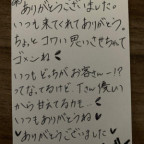 ありがとうございました。
いつも来てくれてありがとう。
ちょっとコワい思いさせちゃって
ゴメンね
いつもどっちがお客さんー!?
ってなってるけど Tさん優しい
から甘えてるカモ…
いつもありがとうね♥
♥ありがとうございました♥